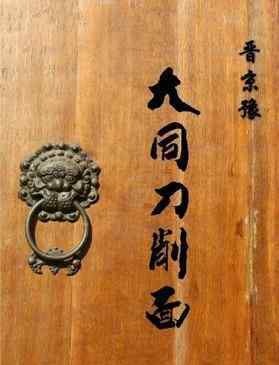 晋京豫
大同刀削面